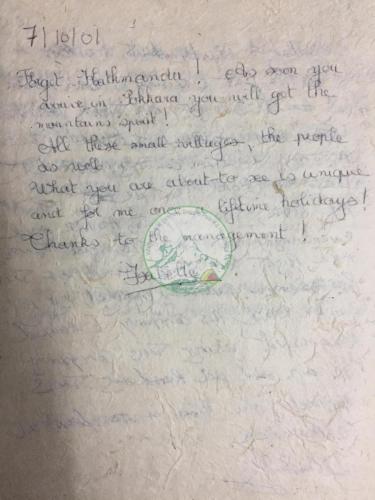 7/10/01
Forget Kathmandu! As soon you
arrive in Pokhara you will get the
mountains spirit!
All these small villages, the people
as well
What you are about to see is unique
and for me once lifetime holidays!
Thanks to the management!
Isabelle